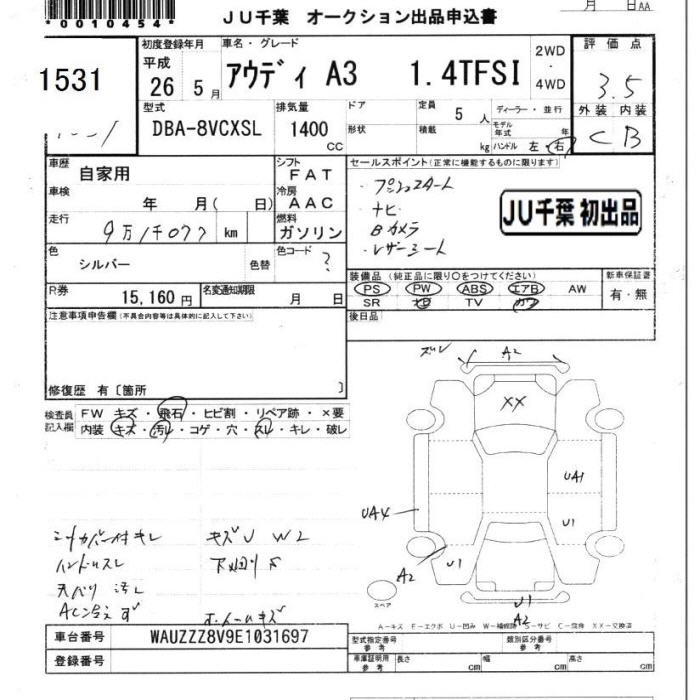 *0010454*
JU千葉 オークション出品申込書
月 日 AA
1531
初度登録年月
平成
26 5月
車名・グレード
アウディ A3 1.4TFSI
2WD
・
4WD
評価点
3.5
外装 内装
C B
型式
DBA-8VCXSL
排気量
1400
CC
ドア
形状
定員 5 人
積載 kg
ディーラー・並行
モデル年式 年
ハンドル 左・右
車歴
自家用
車検
年 月( 日)
走行
9万1千077 km
シフト
FAT
冷房
AAC
燃料
ガソリン
色
シルバー
色替
色コード
?
R券
15,160円
名変通知期限
月 日
セールスポイント(正常に機能するものに限ります)
・プッシュスタート
・ナビ
・Bカメラ
・レザーシート
JU千葉 初出品
装備品 (純正品に限り○をつけてください)
PS PW ABS エアB AW
SR TV
新車保証書
有・無
後日品
注意事項申告欄(不具合内容等は具体的に記入して下さい)
修復歴 有〔箇所 〕
検査員
記入欄
FW キズ・飛石・ヒビ割・リペア跡・×要
内装 キズ・汚レ・コゲ・穴・スレ・キレ・破レ
ズレ
A2
XX
UA1
U1
UA4
A2
U1
U1
A2
スペア
キズU W2
ハンドルスレ
天バリ 汚レ
A-キズ F-エクボ U-凹み W-補修跡 S-サビ C-腐食 XX-交換済
車台番号 WAUZZZ8V9E1031697
登録番号
型式指定番号
参考
類別区分番号
参考
車庫証明用
参考
長さ cm 幅 cm 高さ cm